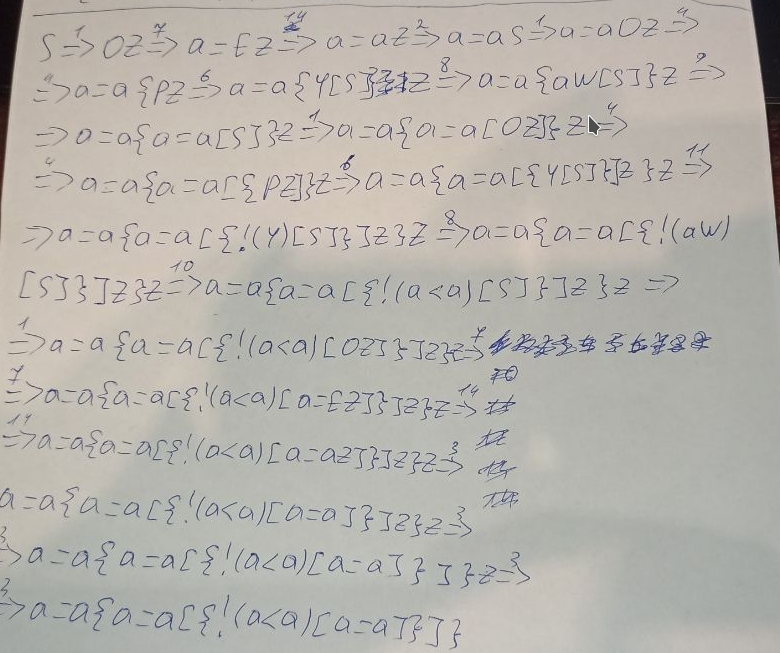 S =>¹ OZ =>⁷ a=EZ =>¹⁴ a=aZ =>² a=aS =>¹ a=aOZ =>⁴
=>⁴ a=a{PZ =>⁶ a=a{Y[S]}Z =>⁸ a=a{aW[S]}Z =>⁹
=> a=a{a=a[S]}Z =>¹ a=a{a=a[OZ]}Z =>⁴
=>⁴ a=a{a=a[{PZ]}Z =>⁶ a=a{a=a[{Y[S]}]Z}Z =>¹¹
=> a=a{a=a[{!(Y)[S]}]Z}Z =>⁸ a=a{a=a[{!(aW)
[S]}]Z}Z =>¹⁰ a=a{a=a[{!(a<a)[S]}]Z}Z =>
=>¹ a=a{a=a[{!(a<a)[OZ]}]Z}Z =>⁷
=>⁷ a=a{a=a[{!(a<a)[a=EZ]}]Z}Z =>¹⁴
=>¹⁴ a=a{a=a[{!(a<a)[a=aZ]}]Z}Z =>³
a=a{a=a[{!(a<a)[a=a]}]Z}Z =>³
=>³ a=a{a=a[{!(a<a)[a=a]}]}Z =>³
=>³ a=a{a=a[{!(a<a)[a=a]}]}